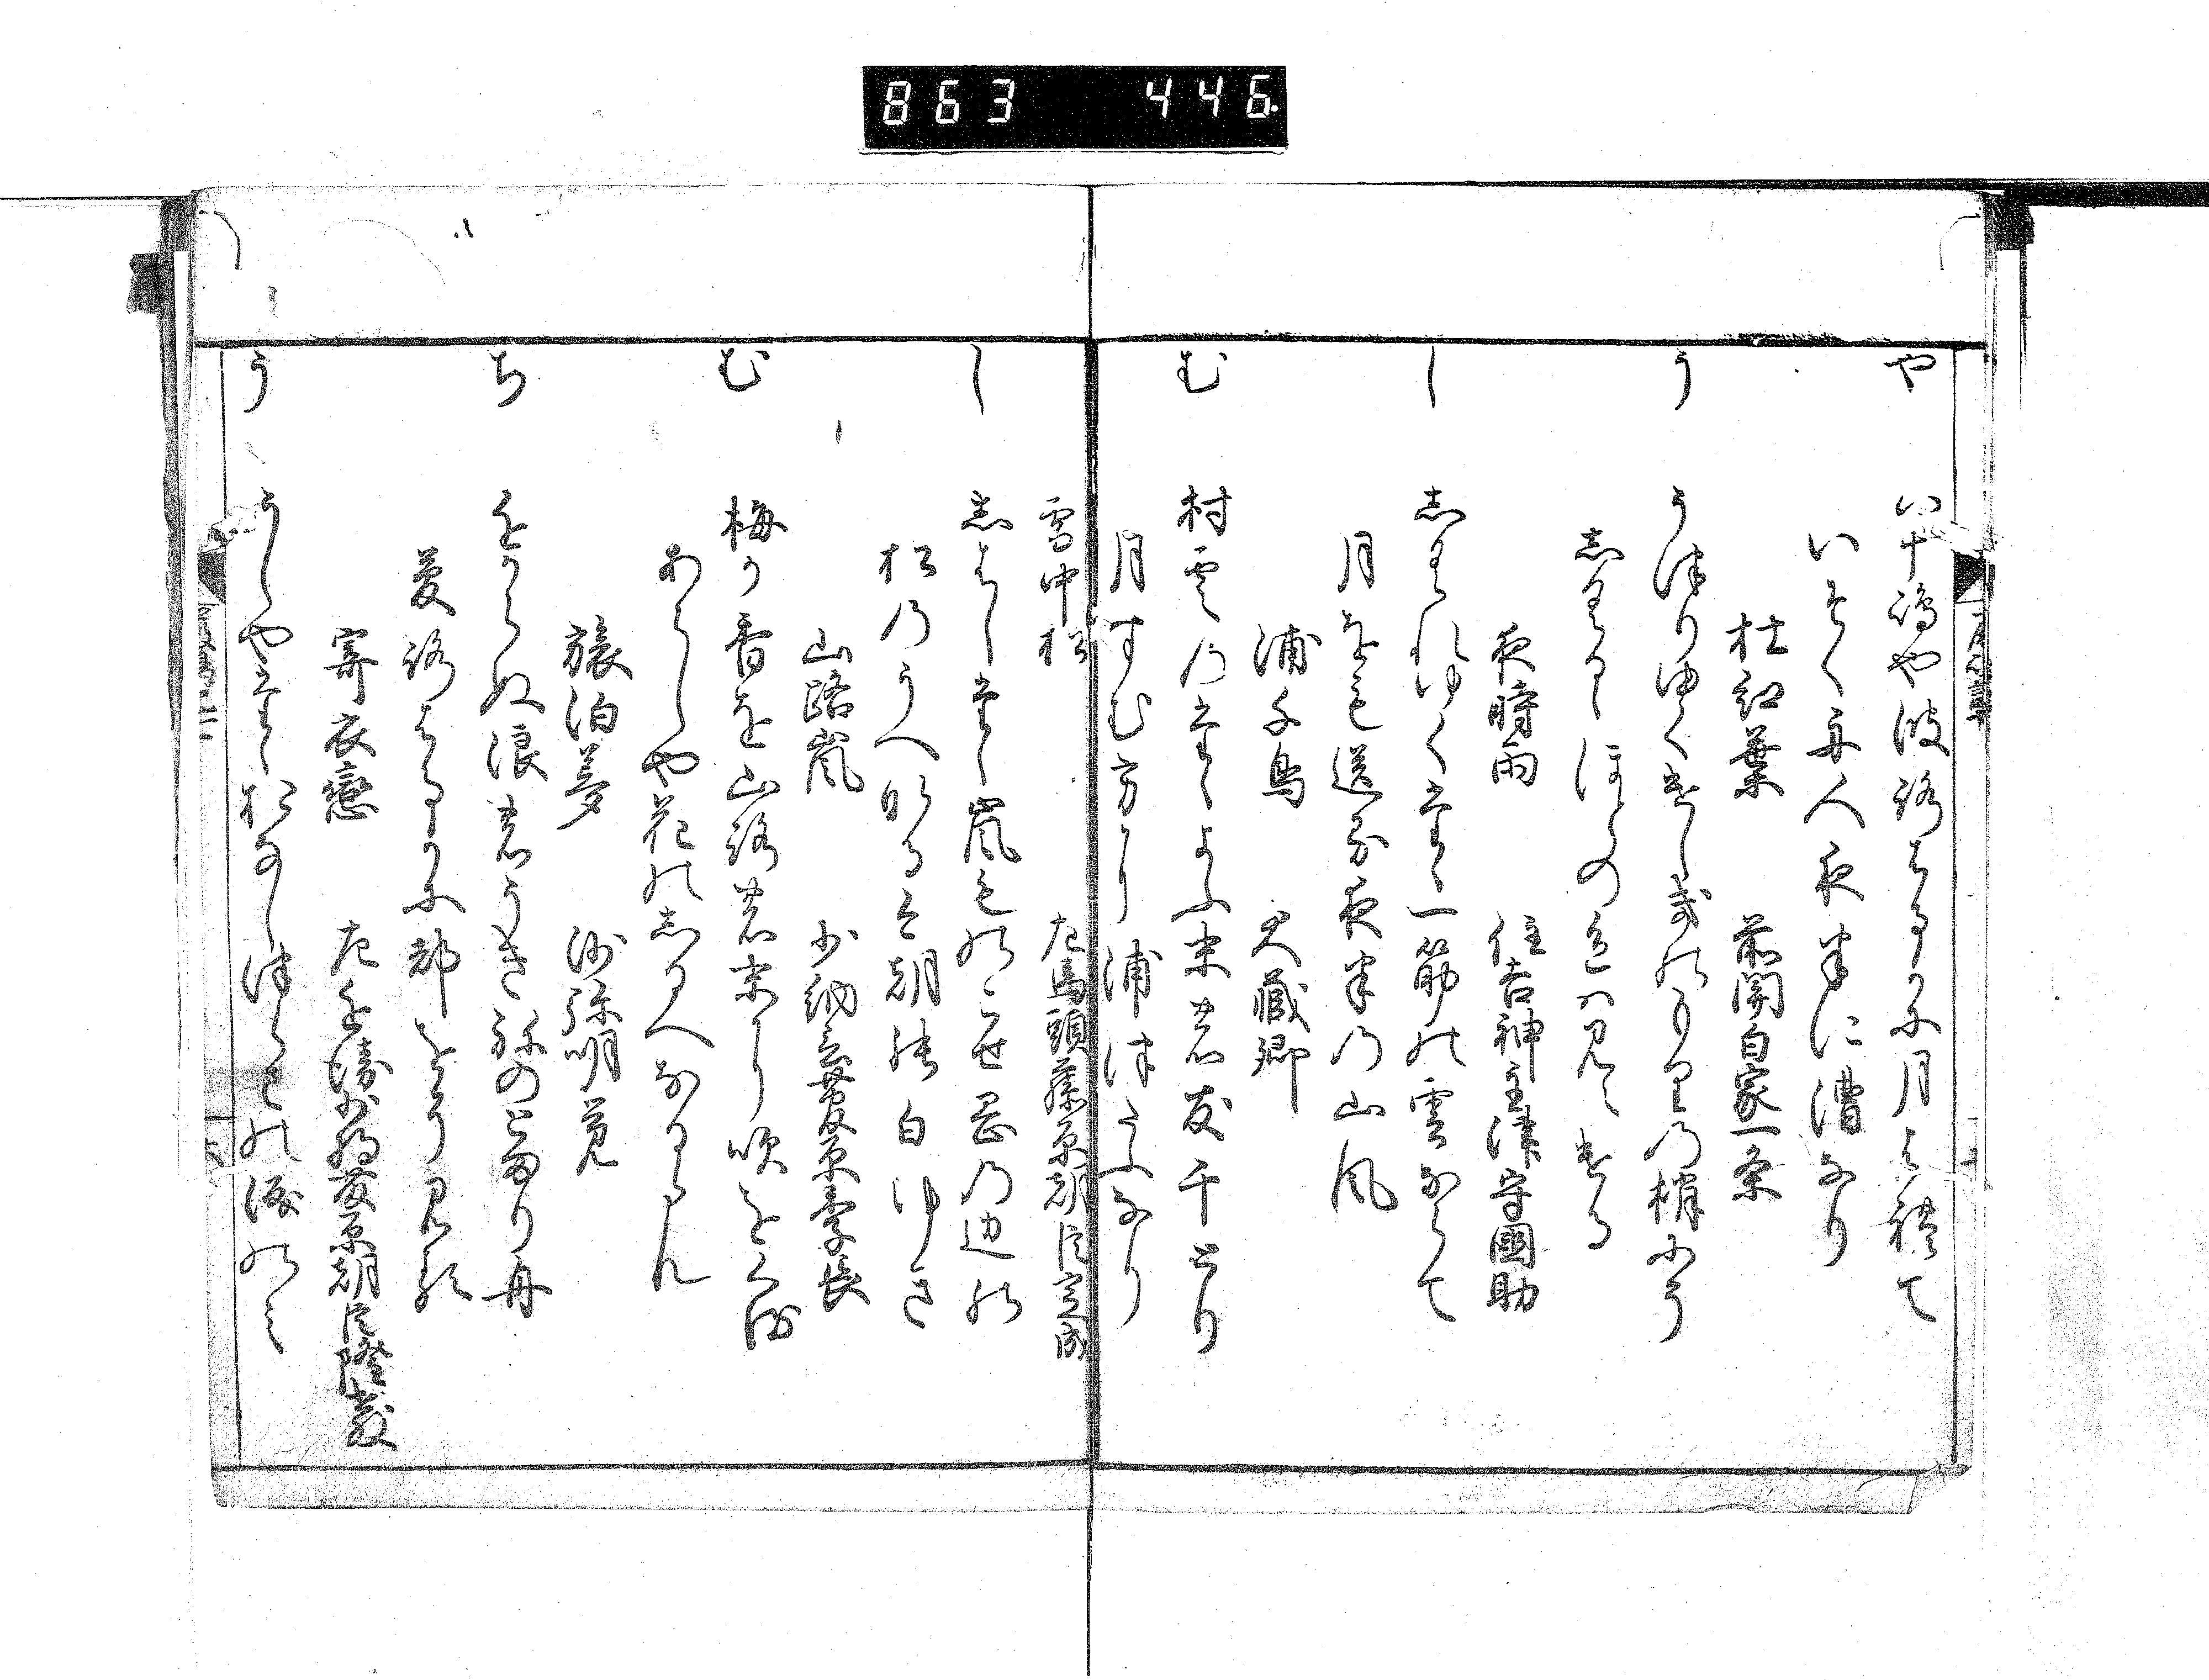 863 446.
や
八十嶋や波路はるかに月はれて
いそく舟人夜半に漕なり
杜紅葉 前関白家一条
う
うつりゆくけしきのもりの梢にそ
しくるゝほとの色は見えける
夜時雨 住吉神主津守國助
し
しくれゆくたゝ一筋の雲なくて
月をも送る夜半の山風
浦千鳥 大蔵卿
む
村雲のたゝよふ末の友千とり
月すむ方に浦つたふなり
雪中松 左馬頭藤原朝臣定成
し
しはしたゝ嵐ものこせ岡の辺の
松のうへなる今朝の白ゆき
山路嵐 少納言藤原季長
む
梅か香を山路の末に吹をくる
あらしや花のしるへなるらん
旅泊夢 沙弥明覚
ち
ちからぬ浪のうきねのとまり舟
夢路はるかに都をそ見る
寄衣戀 左近衛少将藤原朝臣隆教
う
うしやたゝ松なしつらさの涙のみ